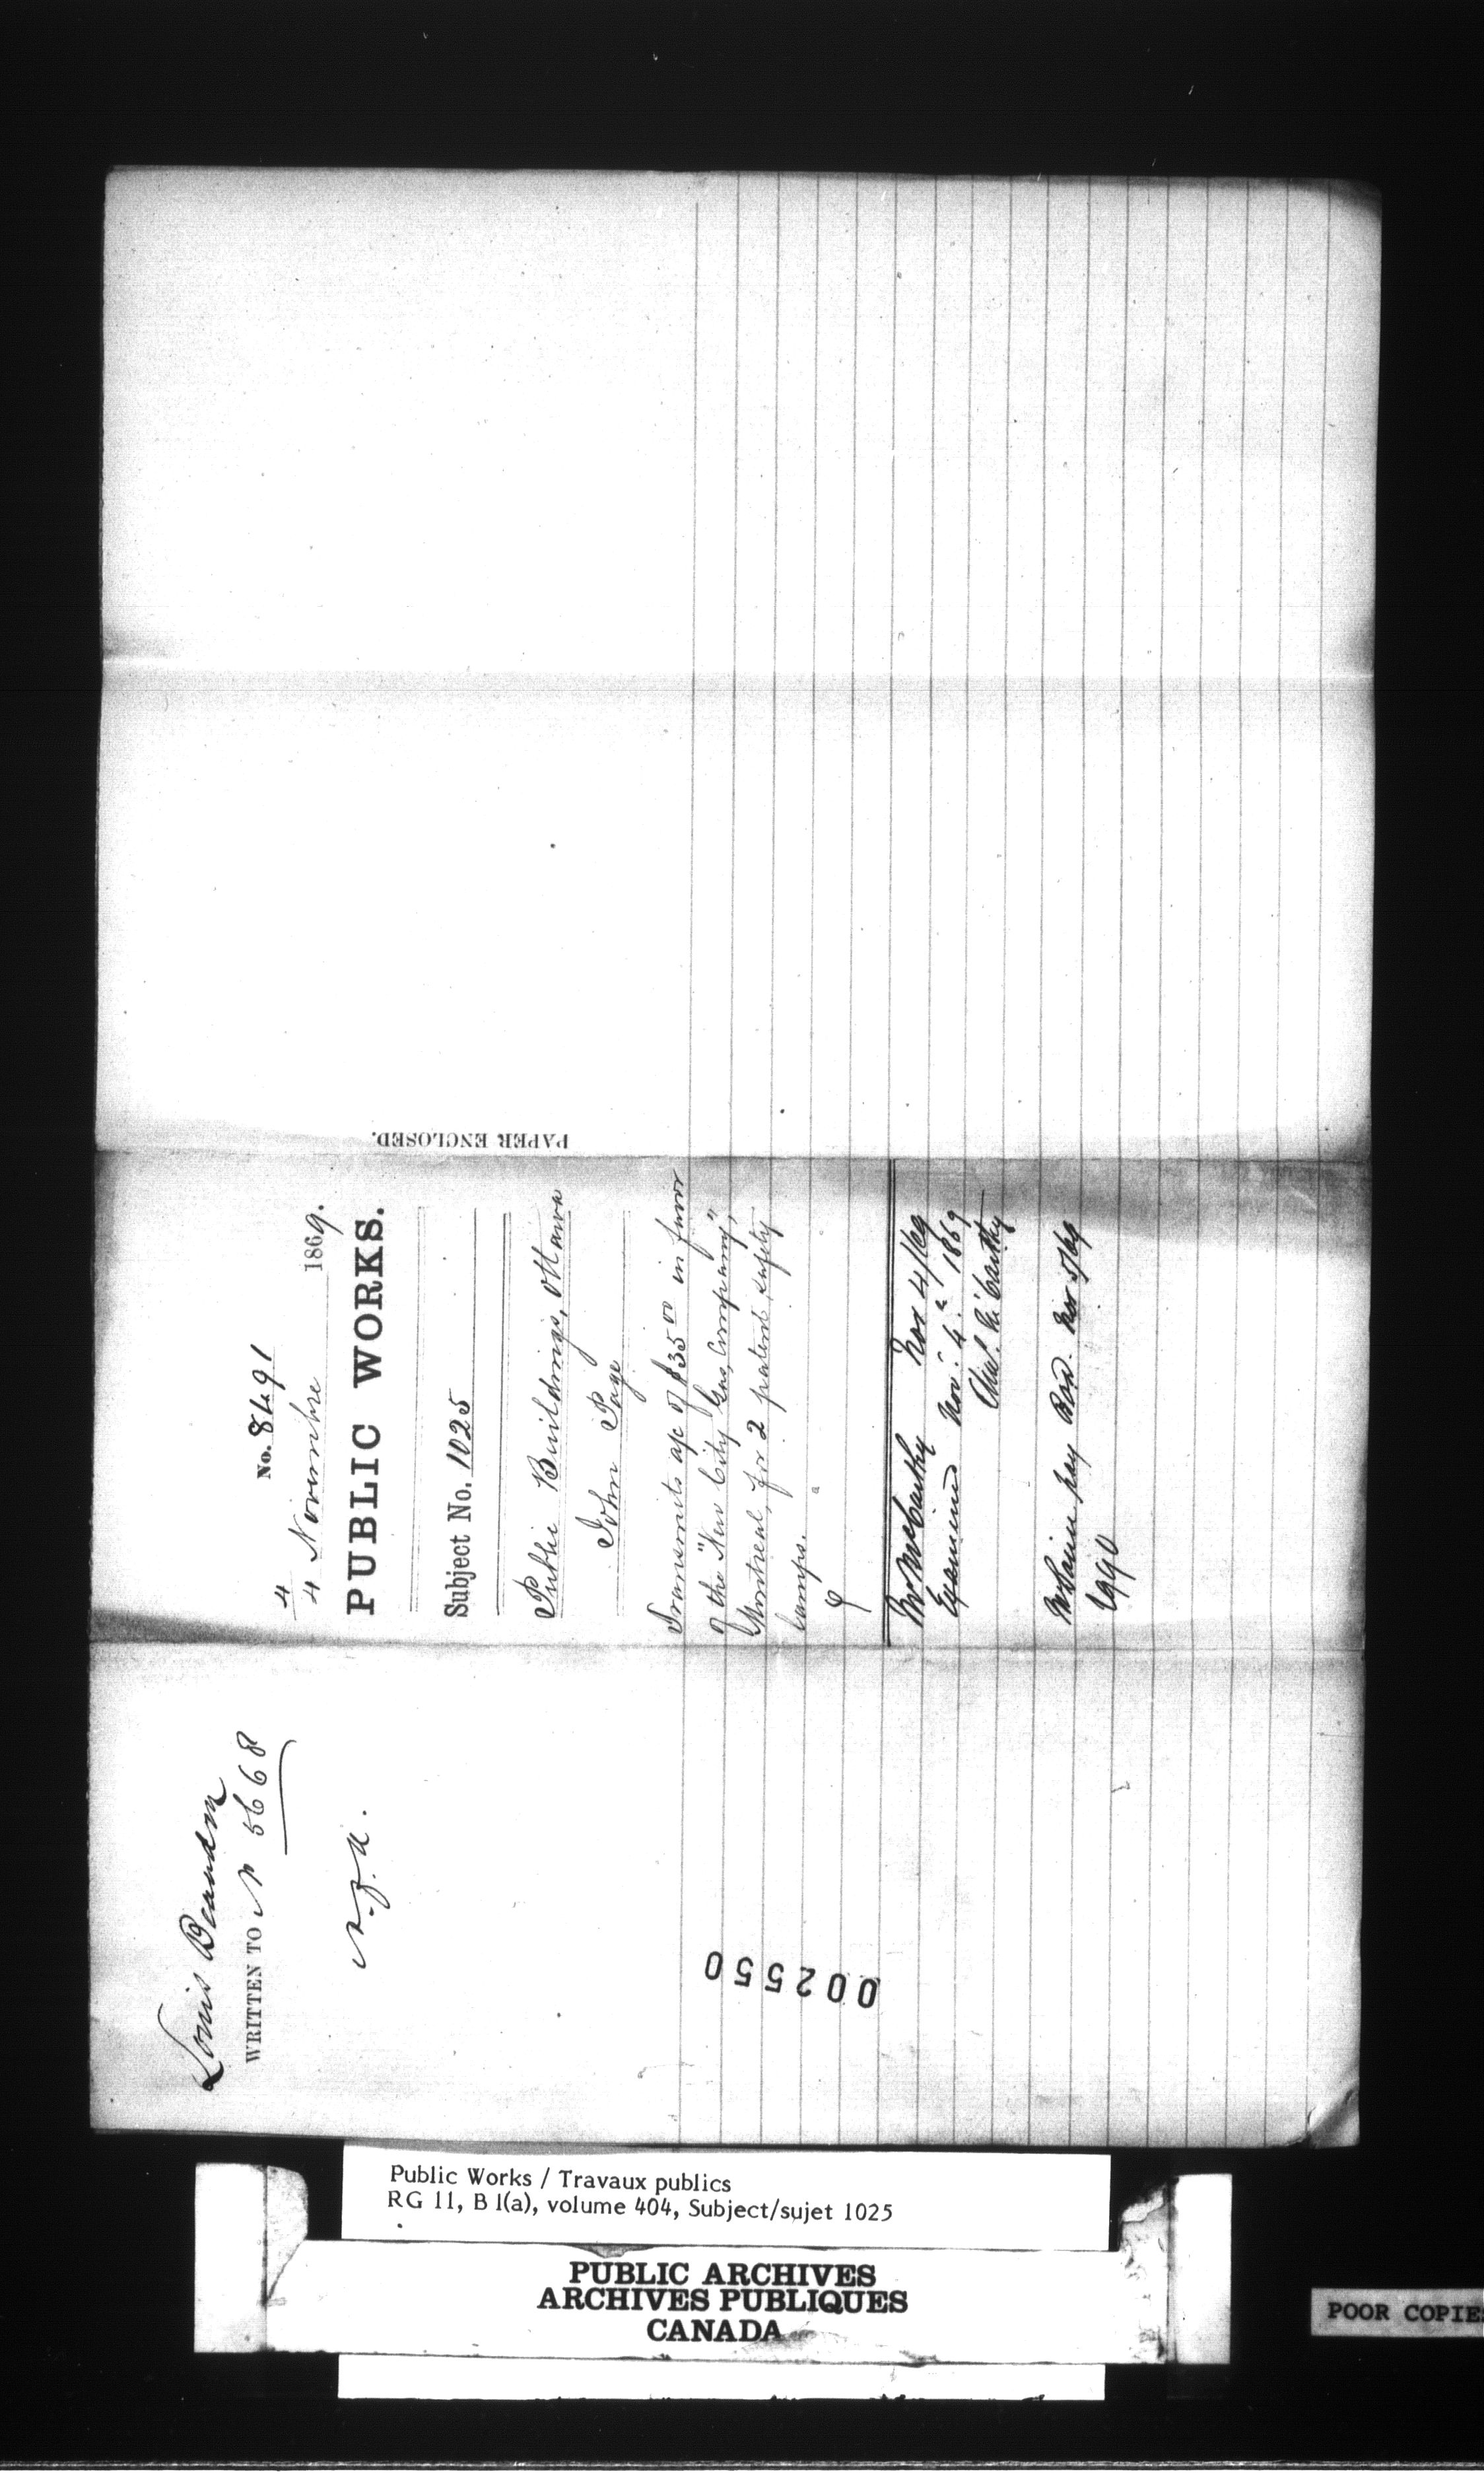 Louis Beaudry
WRITTEN TO N 5668
002550
No. 8491
4
4 Novembre 1869.
PUBLIC WORKS.
Subject No. 1025
Public Buildings, Ottawa
John Page
Transmits a/c of $35 00 in favor
of the "New City Gas Company",
Montreal, for 2 patent safety
lamps.
Mr McCarthy Nov 4/69
Examined Nov: 4: 1869
pay Nov 5/69
PAPER ENCLOSED.
Public Works / Travaux publics
RG 11, B 1(a), volume 404, Subject/sujet 1025
PUBLIC ARCHIVES
ARCHIVES PUBLIQUES
CANADA
POOR COPIE